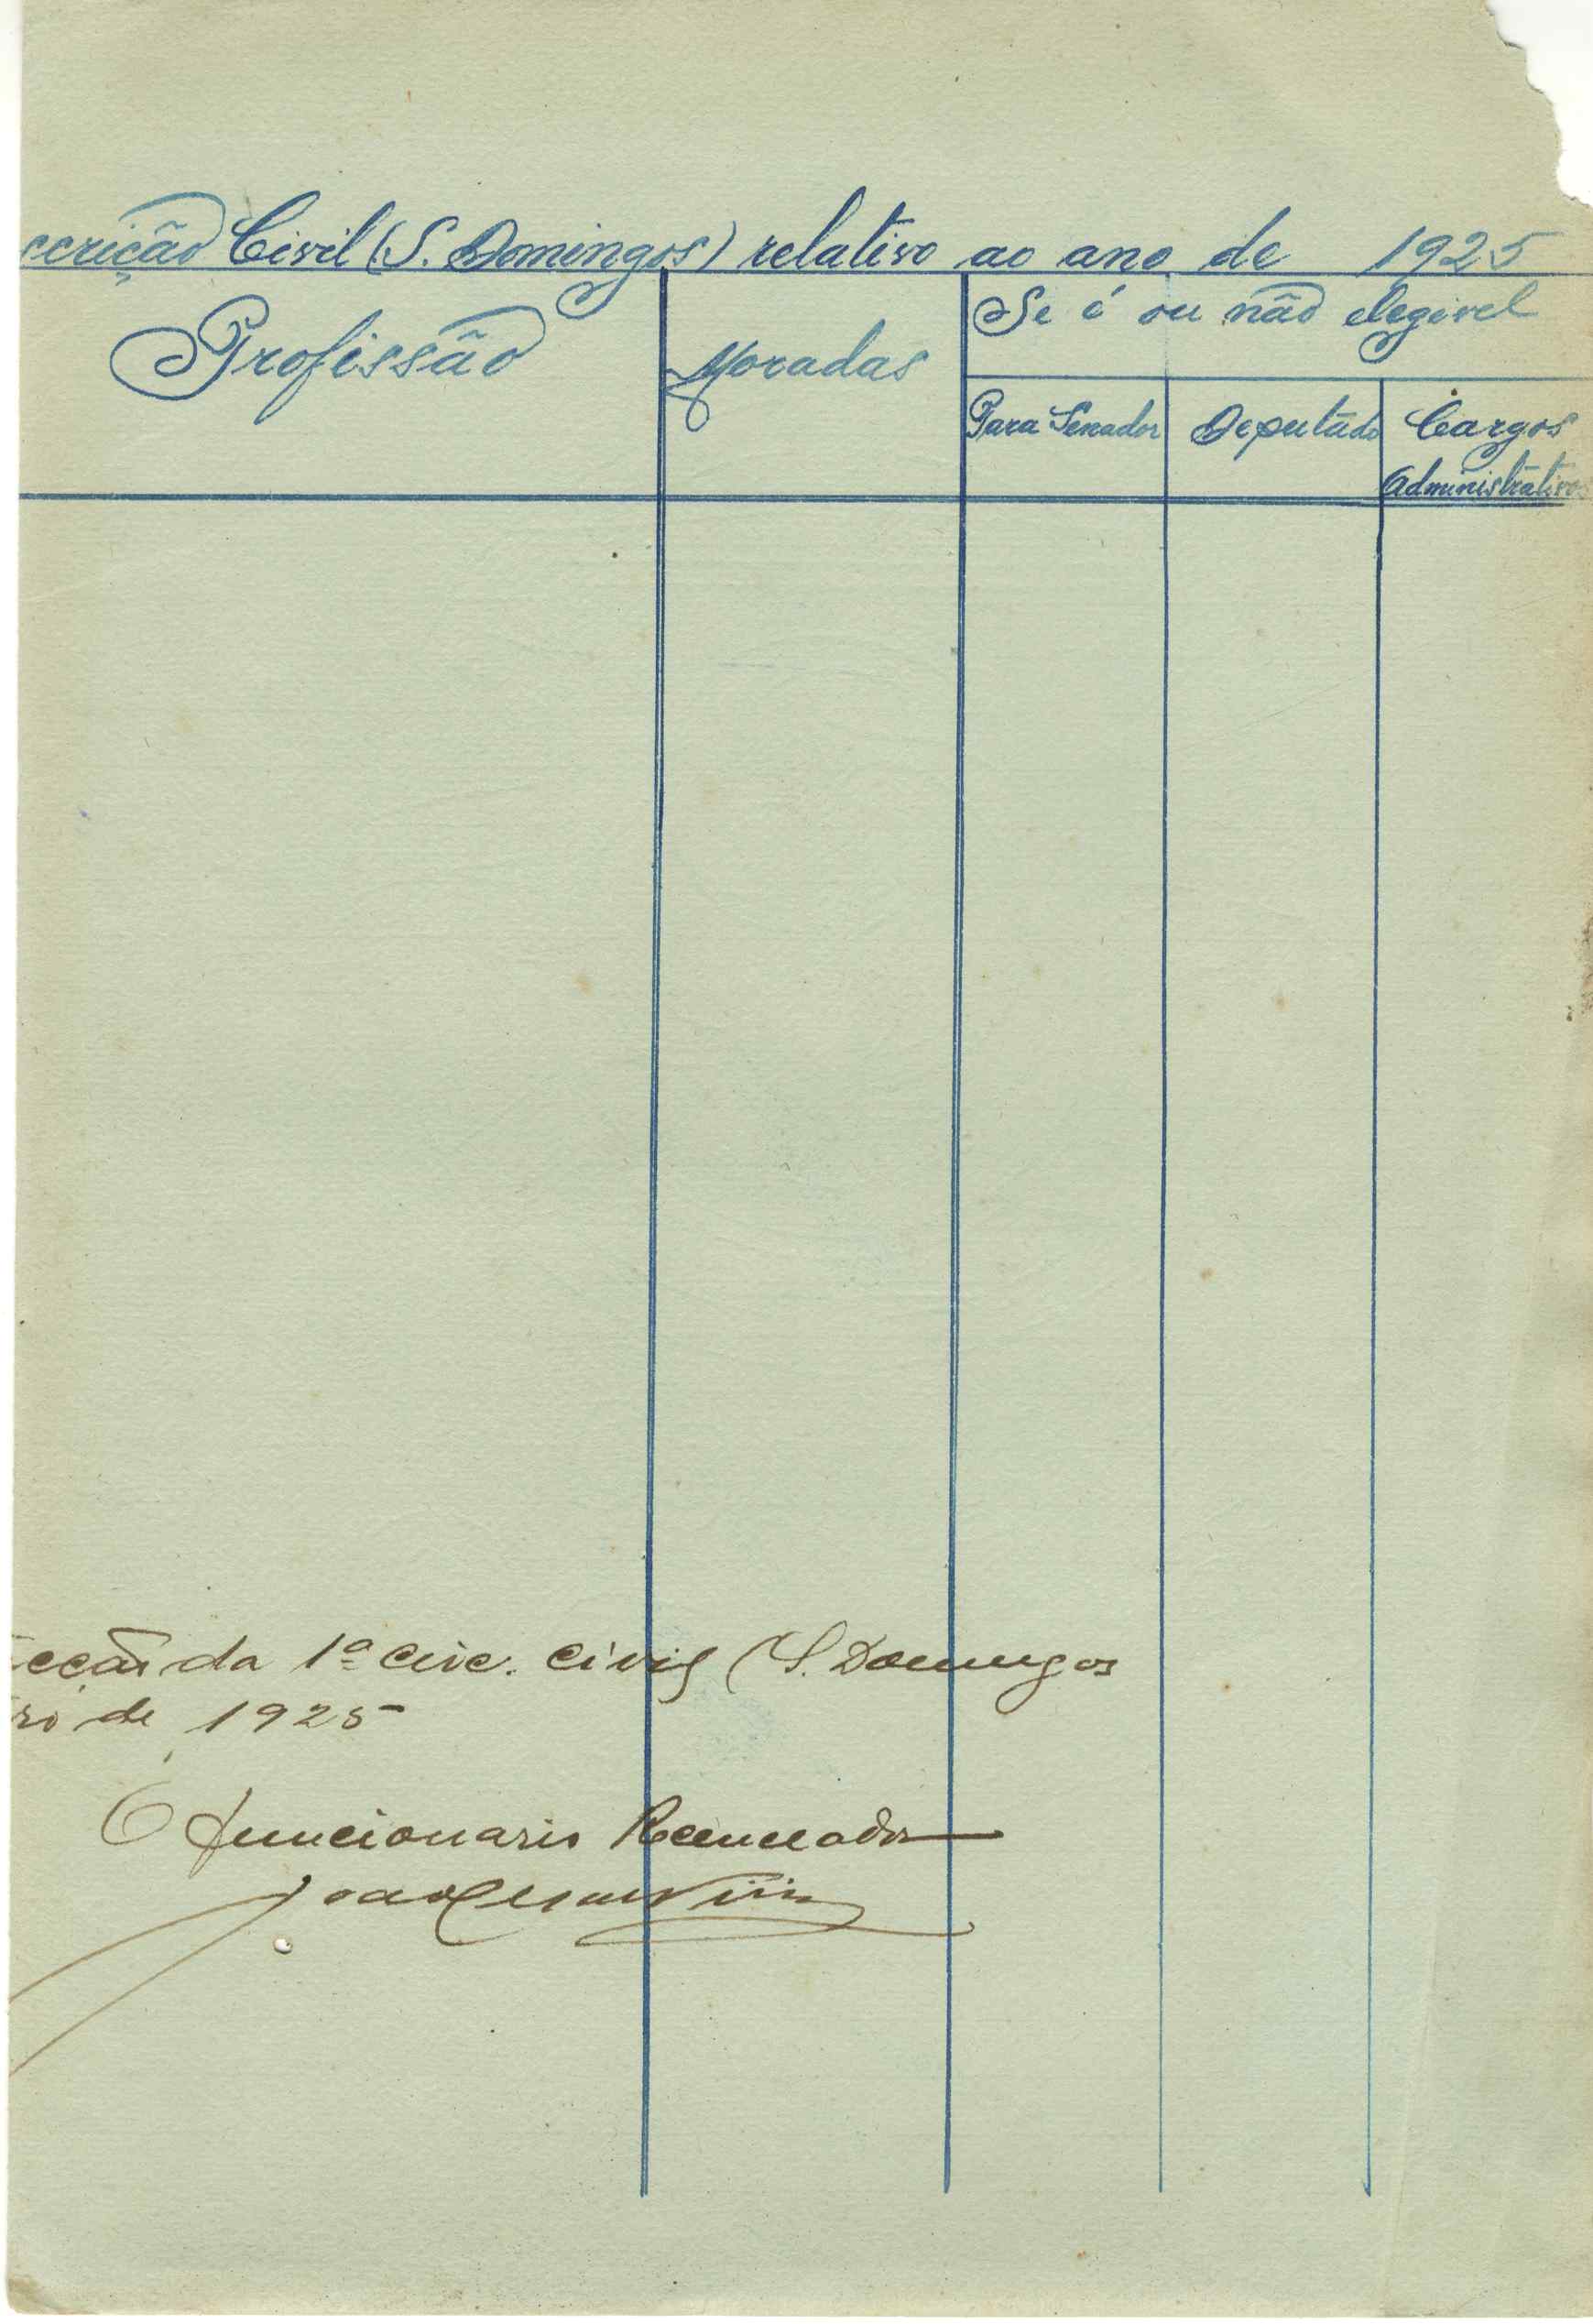 scrição Civil (S. Domingos) relativo ao ano de 1925
Profissão
Moradas
Se é ou não elegivel
Para Senador
Deputado
Cargos
Administrativos
ecção da 1ª circ. civil (S. Domingos
ro de 1925
O funcionario Recenceador
João